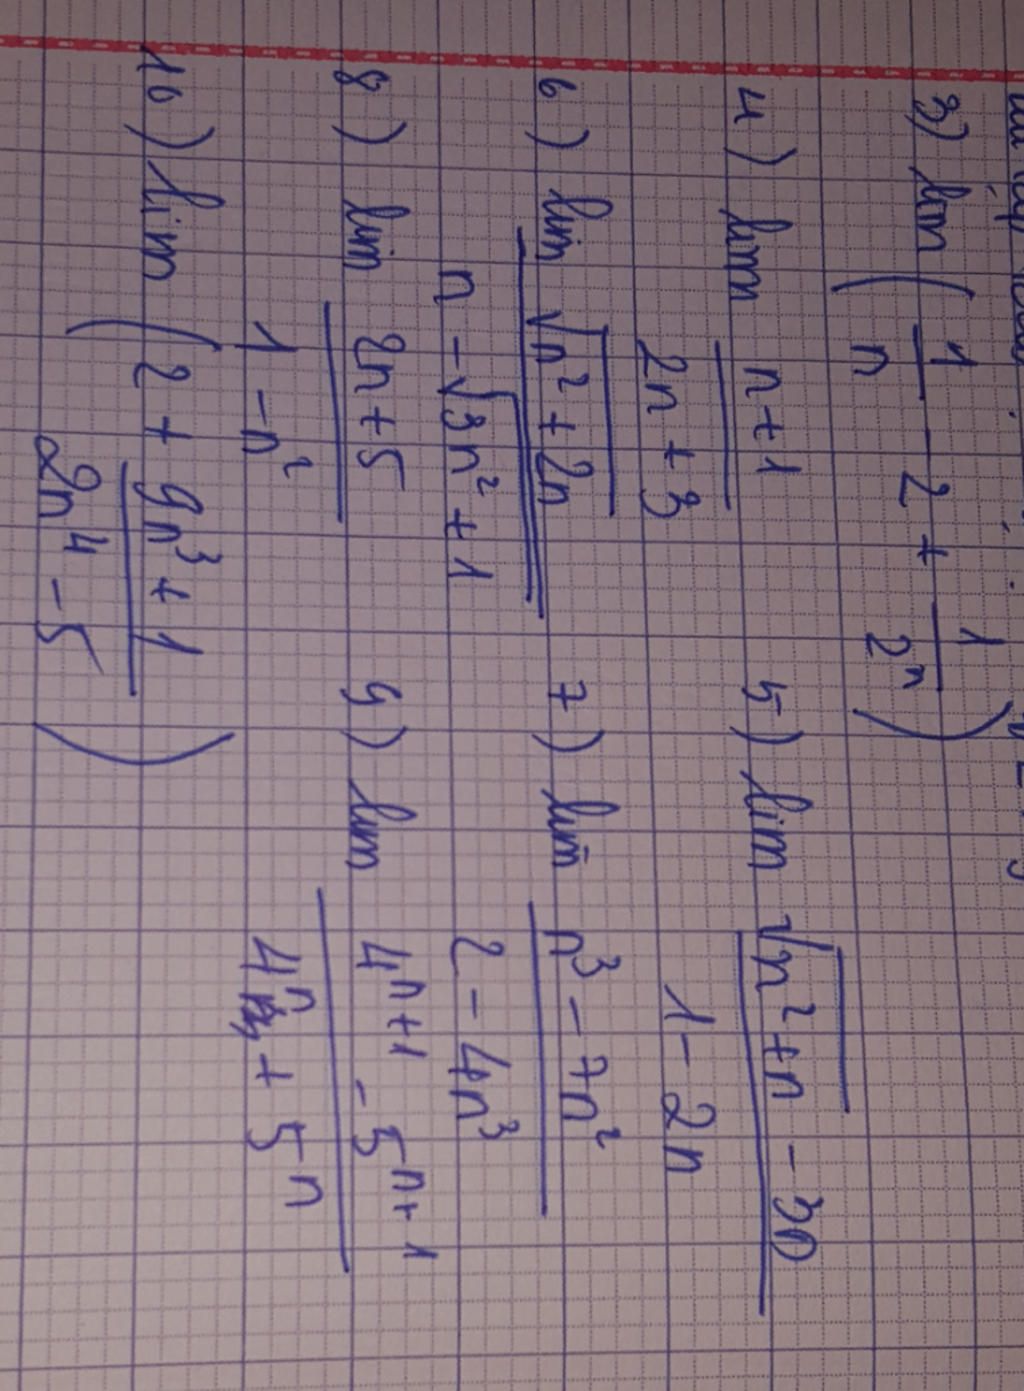 3) lim ( 1/n - 2 + 1/2^n )
4) lim (n+1)/(2n+3) 5) lim (√(n²+n) - 3n)/(1-2n)
6) lim √(n²+2n)/(n-√(3n²+1)) 7) lim (n³-7n²)/(2-4n³)
8) lim (2n+5)/(1-n²) 9) lim (4^(n+1) - 5^(n+1))/(4^n + 5^n)
10) lim ( 2 + (9n³+1)/(2n⁴-5) )